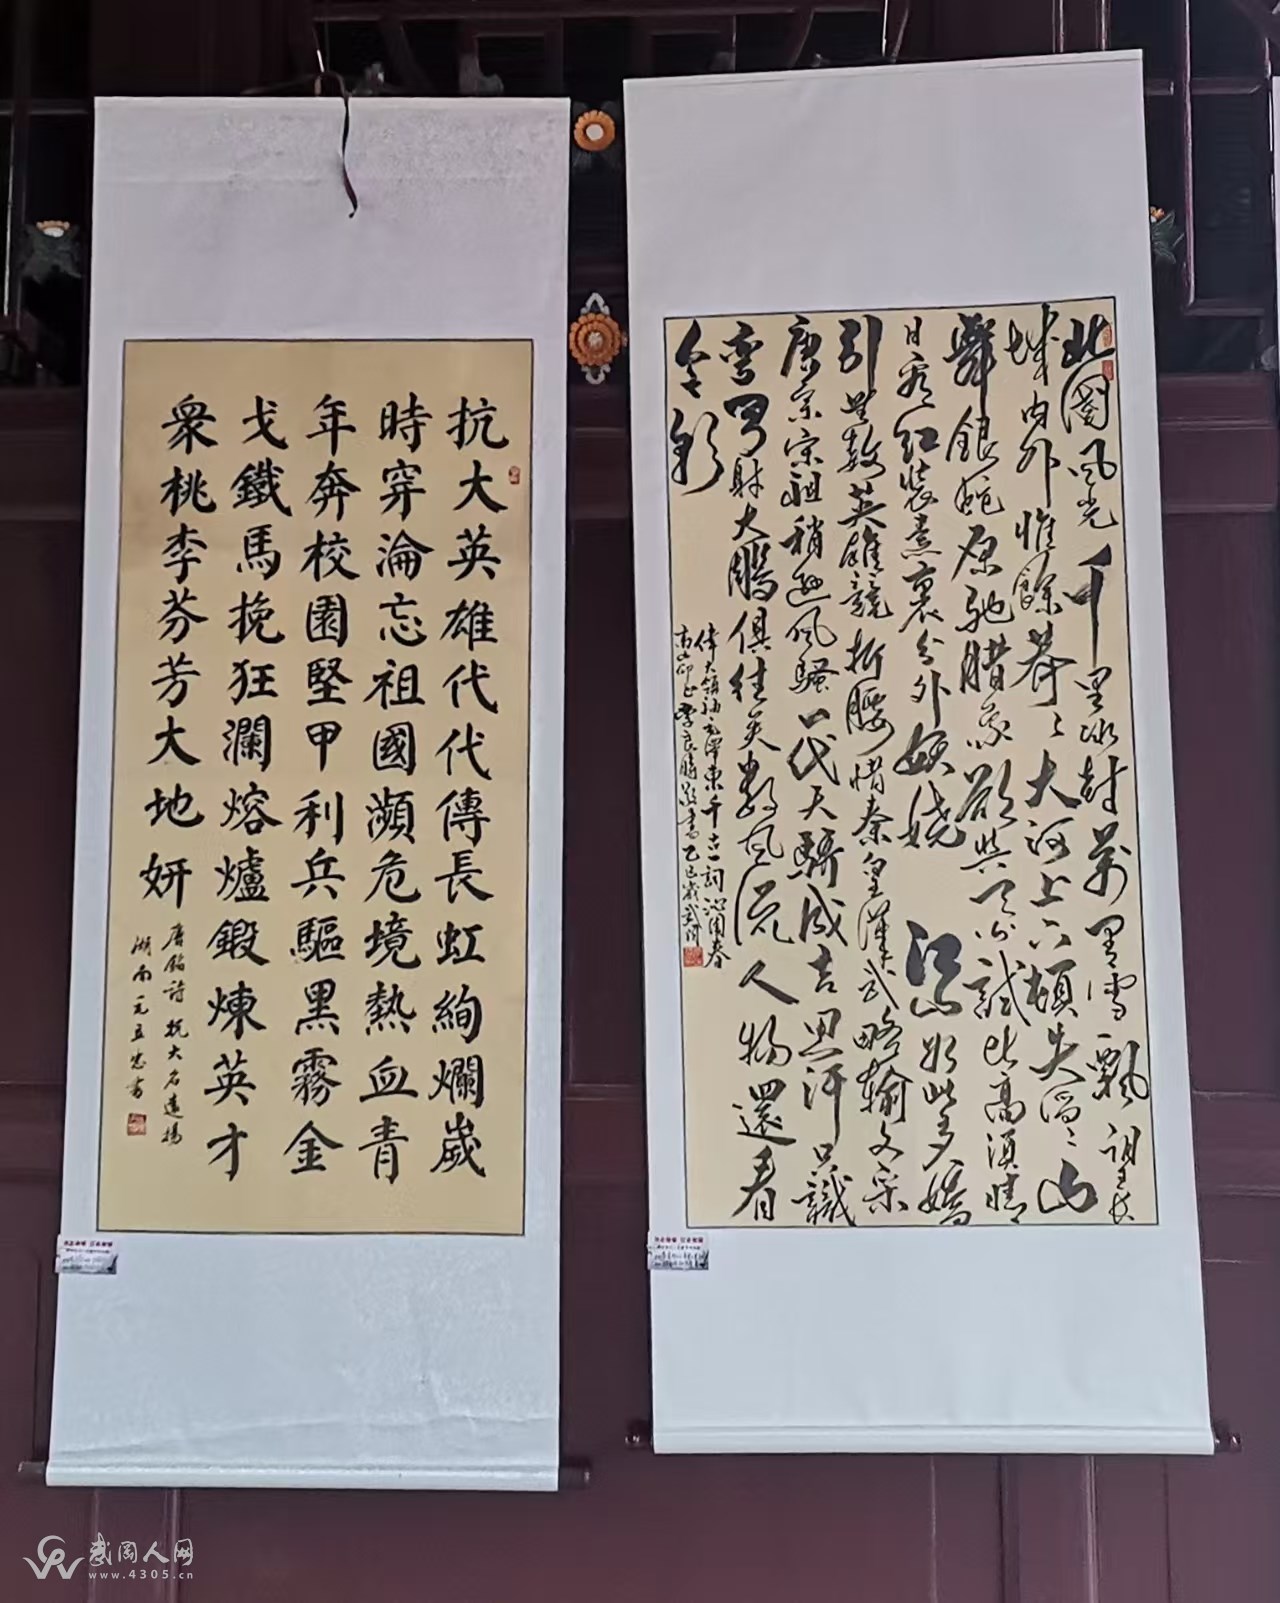 北國風光千里冰封萬里雪飄望長
城內外惟餘莽〻大河上下頓失滔〻山
舞銀蛇原馳腊象欲與天公試比高須晴
日看紅裝素裹分外妖嬈江山如此多嬌
引無數英雄競折腰惜秦皇漢武略輸文采
唐宗宋祖稍遜風騷一代天驕成吉思汗只識
彎弓射大鵰俱往矣數風流人物還看
今朝
偉大領袖毛澤東千古一詞沁園春
高山仰止李良勝敬書乙巳歲武岡
抗大英雄代代傳長虹絢爛歲
時穿淪忘祖國瀕危境熱血青
年奔校園堅甲利兵驅黑霧金
戈鐵馬挽狂瀾熔爐鍛煉英才
衆桃李芬芳大地妍
唐銘詩抗大名遠揚
湖南元五忠書
武岡人网
www.4305.cn